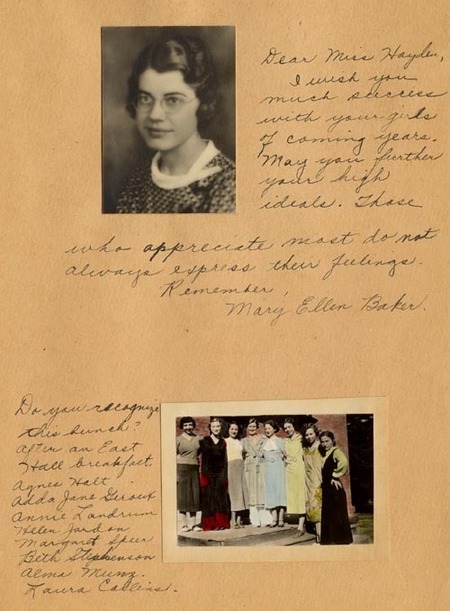 Dear Miss Hayden,
I wish you
much success
with your girls
of coming years.
May you further
your high
ideals. Those
who appreciate most do not
always express their feelings.
Remember,
Mary Ellen Baker.
Do you recognize
this bunch?
After an East
Hall breakfast.
Agnes Halt
Adda Jane Geroux
Annie Landrum
Helen Jardon
Margaret Speer
Beth Stephenson
Alma Munz.
Laura Collins.